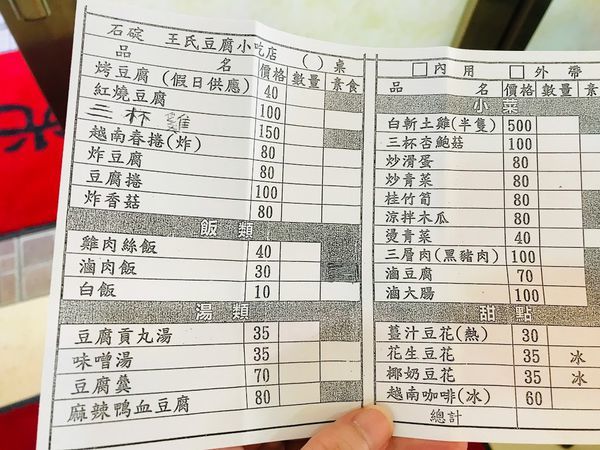 石碇 王氏豆腐小吃店 ( )桌
品名 價格 數量 素食
烤豆腐(假日供應) 40
紅燒豆腐 100
三杯雞 150
越南春捲(炸) 80
炸豆腐 80
豆腐捲 100
炸香菇 80
飯類
雞肉絲飯 40
滷肉飯 30
白飯 10
湯類
豆腐貢丸湯 35
味噌湯 35
豆腐羹 70
麻辣鴨血豆腐 80
內用 外帶
品名 價格 數量 素
小菜
白斬土雞(半隻) 500
三杯杏鮑菇 100
炒滑蛋 80
炒青菜 80
桂竹筍 80
涼拌木瓜 80
燙青菜 40
三層肉(黑豬肉) 100
滷豆腐 70
滷大腸 100
甜點
薑汁豆花(熱) 30
花生豆花 35 冰
椰奶豆花 35 冰
越南咖啡(冰) 60
總計